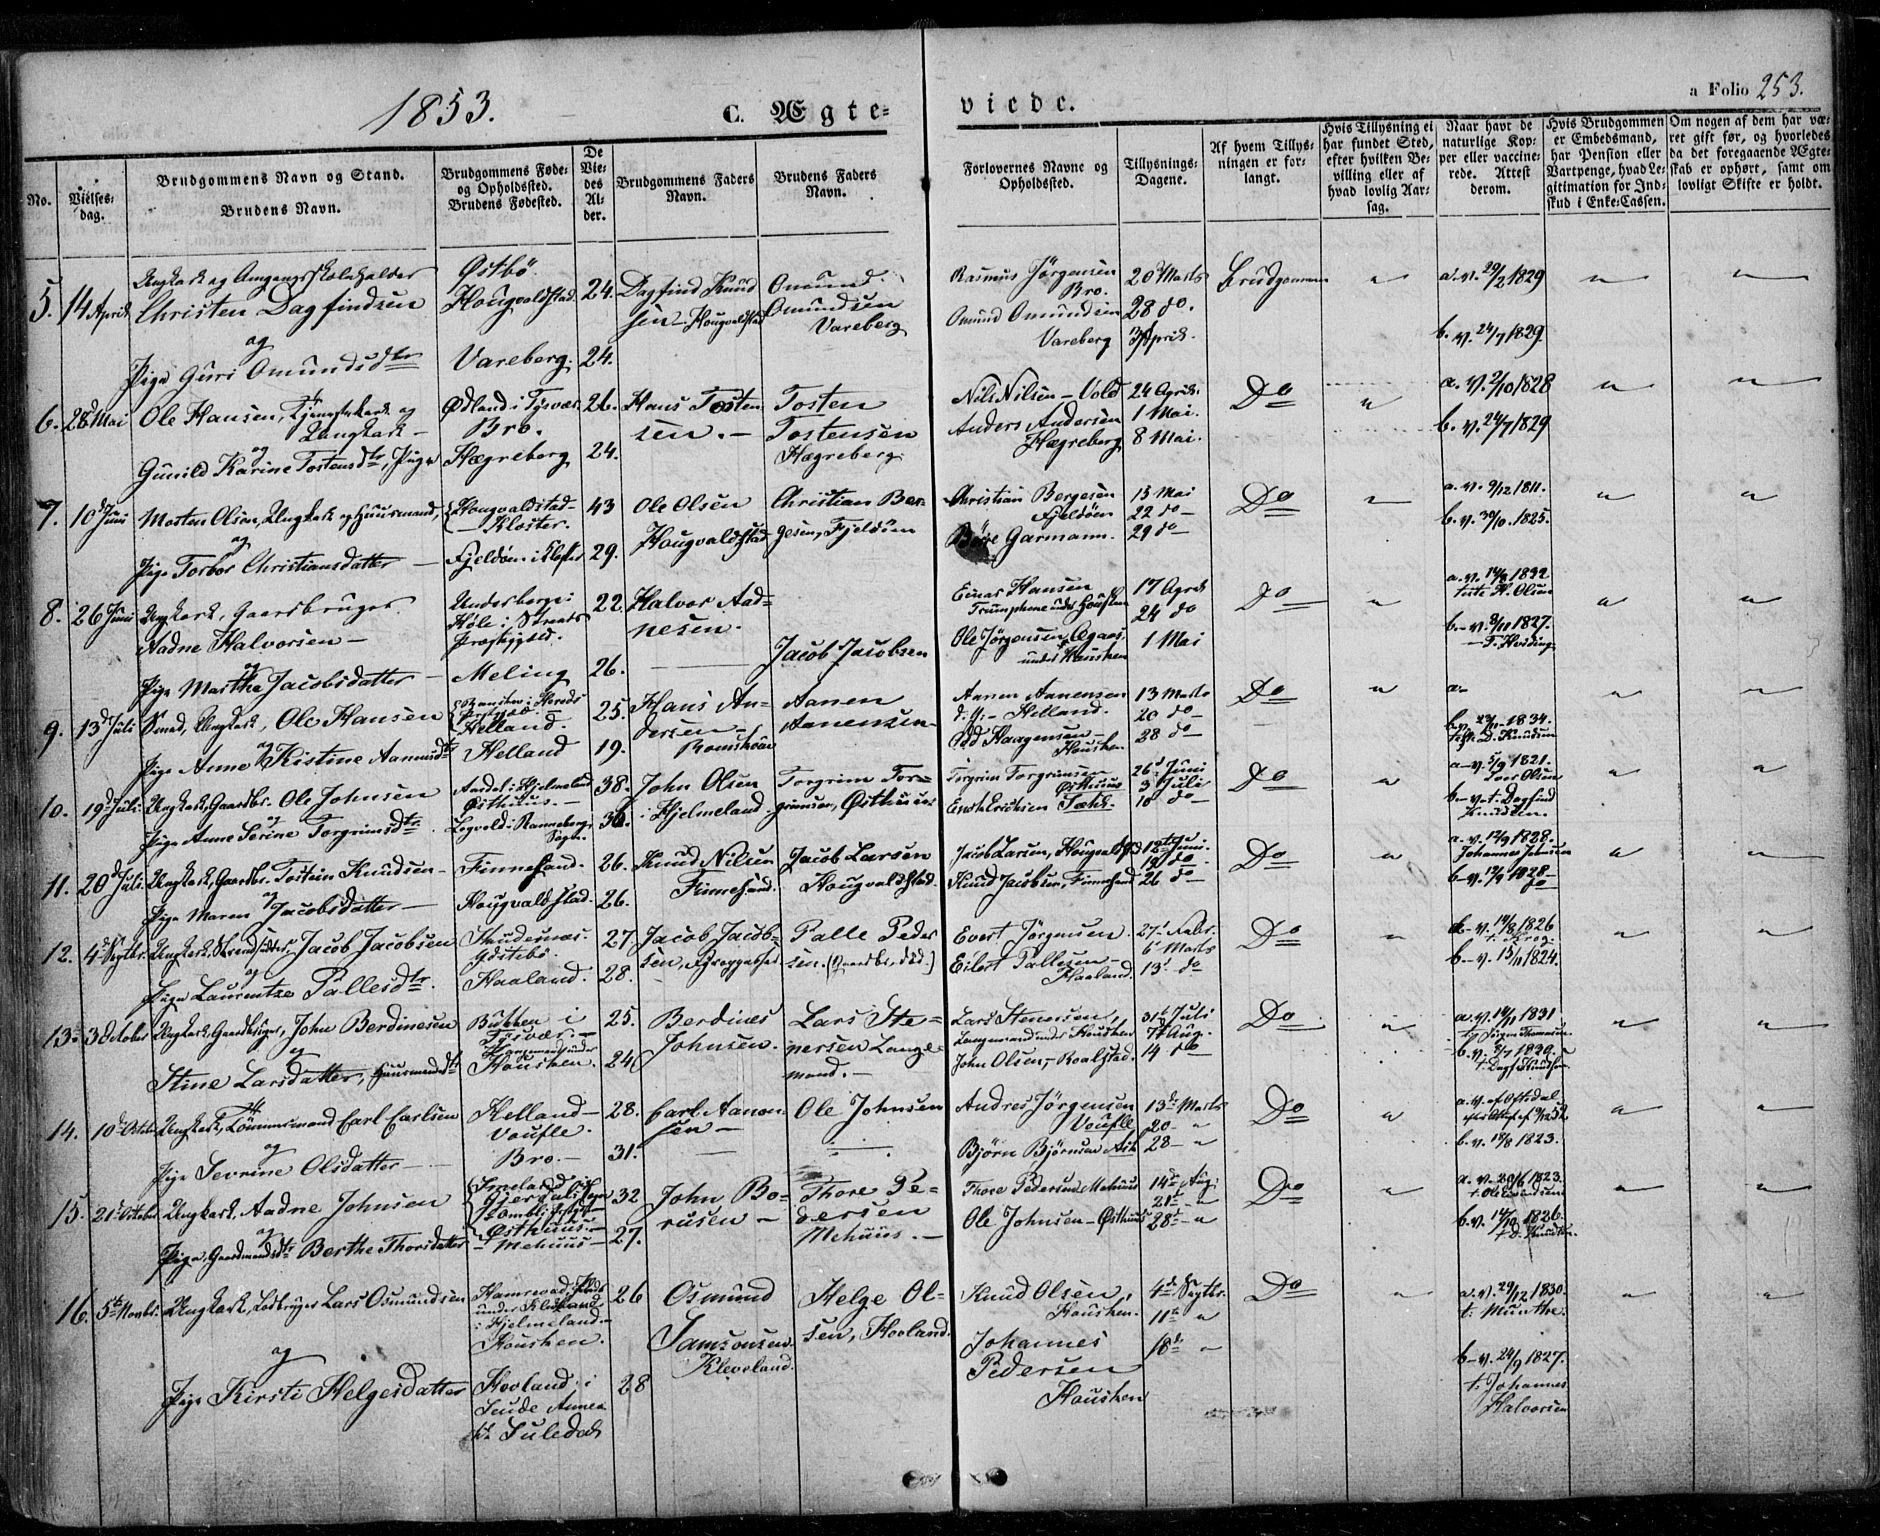 1853.
C. Ægte-
viede.
a Folio 253.
No.
Vielses-
dag.
Brudgommens Navn og Stand.
Brudens Navn.
Brudgommens Føde-
og Opholdssted.
Brudens Fødested.
De
Vie-
des
Al-
der.
Brudgommens Faders
Navn.
Brudens Faders
Navn.
Forlovernes Navne og
Opholdssted.
Tillysnings-
Dagene.
Af hvem Tillys-
ningen er for-
langt.
Hvis Tillysning ei
har fundet Sted,
efter hvilken Be-
villing eller af
hvad lovlig Aar-
sag.
Naar havt de
naturlige Kop-
per eller vaccine-
rede. Attest
derom.
Hvis Brudgommen
er Embedsmand,
har Pension eller
Vartpenge, hvad Le-
gitimation for Ind-
skud i Enke-Cassen.
Om nogen af dem har væ-
ret gift før, og hvorledes
da det foregaaende Ægte-
skab er ophørt, samt om
lovligt Skifte er holdt.
5. 14 April
Ungkarl og Omgangsskoleholder
Christen Dagfindsen
og
Pige Guri Omundsdtr
Østbö.
Hougvaldstad
Vareberg.
24.
24.
Dagfind Knud
sen - Hougvaldstad
Omund
Omundsen
Vareberg
Rasmus Jørgensen
Bro.
Omund Omundsen
Vareberg
20 Marts
28 do.
3 April.
Brudgommen
a. v. 20/2 1829
b. v. 24/7 1829
6. 28 Mai
Ole Hansen, Tjenestekarl og
Ungkarl -
og
Gunild Karine Tostensdtr, Pige
Ødland i Tysvær
Bro.
Hægreberg
26.
24.
Hans Tosten
sen. -
Tosten
Tostensen
Hægreberg
Nils Nilsen - Vold
Anders Andersen
Hægreberg
24 April
1 Mai.
8 Mai.
Do
a. v. 2/10 1828
b. v. 24/7 1829
7. 10 Juni
Morten Olsen, Ungkarl og Huusmand,
og
Pige Torbor Christiansdatter
Hougvaldstad
Kloster.
Fjeldöen i Kloster
43
29.
Ole Olsen
Hougvaldstad
Christian Ber-
gesen, Fjeldöen
Christian Bergesen
Fjeldöen
Garmann.
15 Mai
22 do
29 do
Do
a. v. 9/12 1811.
b. v. 30/10 1825.
8. 26 Juni
Ungkarl, Gaardbruger
Aadne Halvorsen -
og
Pige Marthe Jacobsdatter -
Underberge i
Höle i Strands
Præstegjeld.
Meling
22
26.
Halvor Aad-
nesen.
Jacob Jacobsen
Einar Hansen
Ole Jørgensen
under Housken
17 April
24 do
1 Mai
Do
a. v. 14/9 1832
teste H. Olsen
b. - v. 8/11 1827.
9. 13 Juli
Smed, Ungkarl, Ole Hansen
og
Pige Anne Kistine Aanensdtr
Helland.
Helland
25.
19.
Hans An-
dersen -
Aanen
Aanensen
Aanen Aanensen
Helland.
Odd Haagensen -
Housken
13 Marts
20 do
28 do
Do
a -
b. v. 23/11 1834.
teste D. Knudsen
10. 19 Juli
Ungkarl, Gaardbr. Ole Johnsen
og
Pige Anne Serine Torgrimsdtr.
Aardal i Hjelmeland
Østhuus. -
Sogn.
38.
36.
John Olsen
i Hjelmeland
Torgrim Tor-
grimsen, Østhuus
Torgrim Torgrimsen
Østhuus
Enok Ericksen
26 Juni
3 Juli
10 do
Do
a - v. 5/9 1821.
Iver Olsen
b - v. t. Dagfind
Knudsen.
11. 20 Juli
Ungkarl, Gaardbr. Tostein Knudsen -
og
Pige Maren Jacobsdatter -
Finnesand.
Hougvaldstad.
26.
26.
Knud Nilsen
Finnesand.
Jacob Larsen
Hougvaldstad.
Jacob Larsen, Hougvaldstad
Knud Jacobsen, Finnesand
12te Juni.
19 do -
26 do
Do
a. v. 12/9 1828.
Johannes Johnsen
b - v. 12/9 1828
do
12. 4 Septbr.
Ungkarl, Jacob Jacobsen
og
Pige Laurentze Pallesdtr.
Skudesnæs.
Haaland.
27.
28.
Jacob Jacob-
sen,
Palle Peder
sen. (Gaardbr., död.)
Evert Jørgensen
Eilert Pallesen -
Haaland.
27 Febr.
6 Marts
13 do
Do
a - v. 14/8 1826
t. Krog.
b - v. 13/11 1824.
13. 3 October
Ungkarl, Gaardbruger, John Berdinesen
og
Stine Larsdatter, Huusmandsdtr
Bukken i
Tysvær. -
Huusmand under
Housken.
25.
24
Berdines
Johnsen.
Lars Ste-
nersen Lange-
mand. -
Lars Stenersen,
Langemand under Housken
John Olsen, - Roalstad.
31te Juli
7de Aug.
14 do
Do
a. v. 14/11 1831
t. Jørgen Thomassen.
b. v. 3/7 1829.
t. Dagf. Knudsen.
14. 10 Octbr
Ungkarl, Tömmermand Earl Earlsen
og
Pige Sevrine Olsdatter -
Helland -
Voufle.
Bro. -
28.
31.
Earl Aanon
sen -
Ole Johnsen
Andres Jørgensen
Voufle
Björn Björnsen Ask
13de Marts
20 - "
28 - "
Do
b. v. 18/8 1823.
15. 21 October
Ungkarl, Aadne Johnsen
og
Pige, Gaardmandsdtr Berthe Thorsdatter
Østhuus.
Mehuus
32
27.
John Bo-
rusen -
Thore Pe-
dersen
Mehuus. -
Thore Pedersen Mehuus
Ole Johnsen - Østhuus
14de Aug.
21te - "
28de - "
Do
a. v. 20/6 1823.
t. Ole Eivindsen
b. v. 14/10 1826.
t. D. Knudsen.
16. 5te Novbr.
Ungkarl, Ledbruger Lars Osmundsen
og
Pige Kirsti Helgesdatter
under Kleveland
i Hjelmeland.
Housken.
Hovland i
Suledal
26
28
Osmund
Samsonsen.
Kleveland.
Helge Ol-
sen, Hovland.
Knud Olsen,
Housken.
Johannes
Pedersen
Housken
4de Septbr.
11te "
18de "
Do
a. v. 29/12 1830.
t. Munthe.
b - v. 24/9 1827.
t. Johannes
Halvorsen